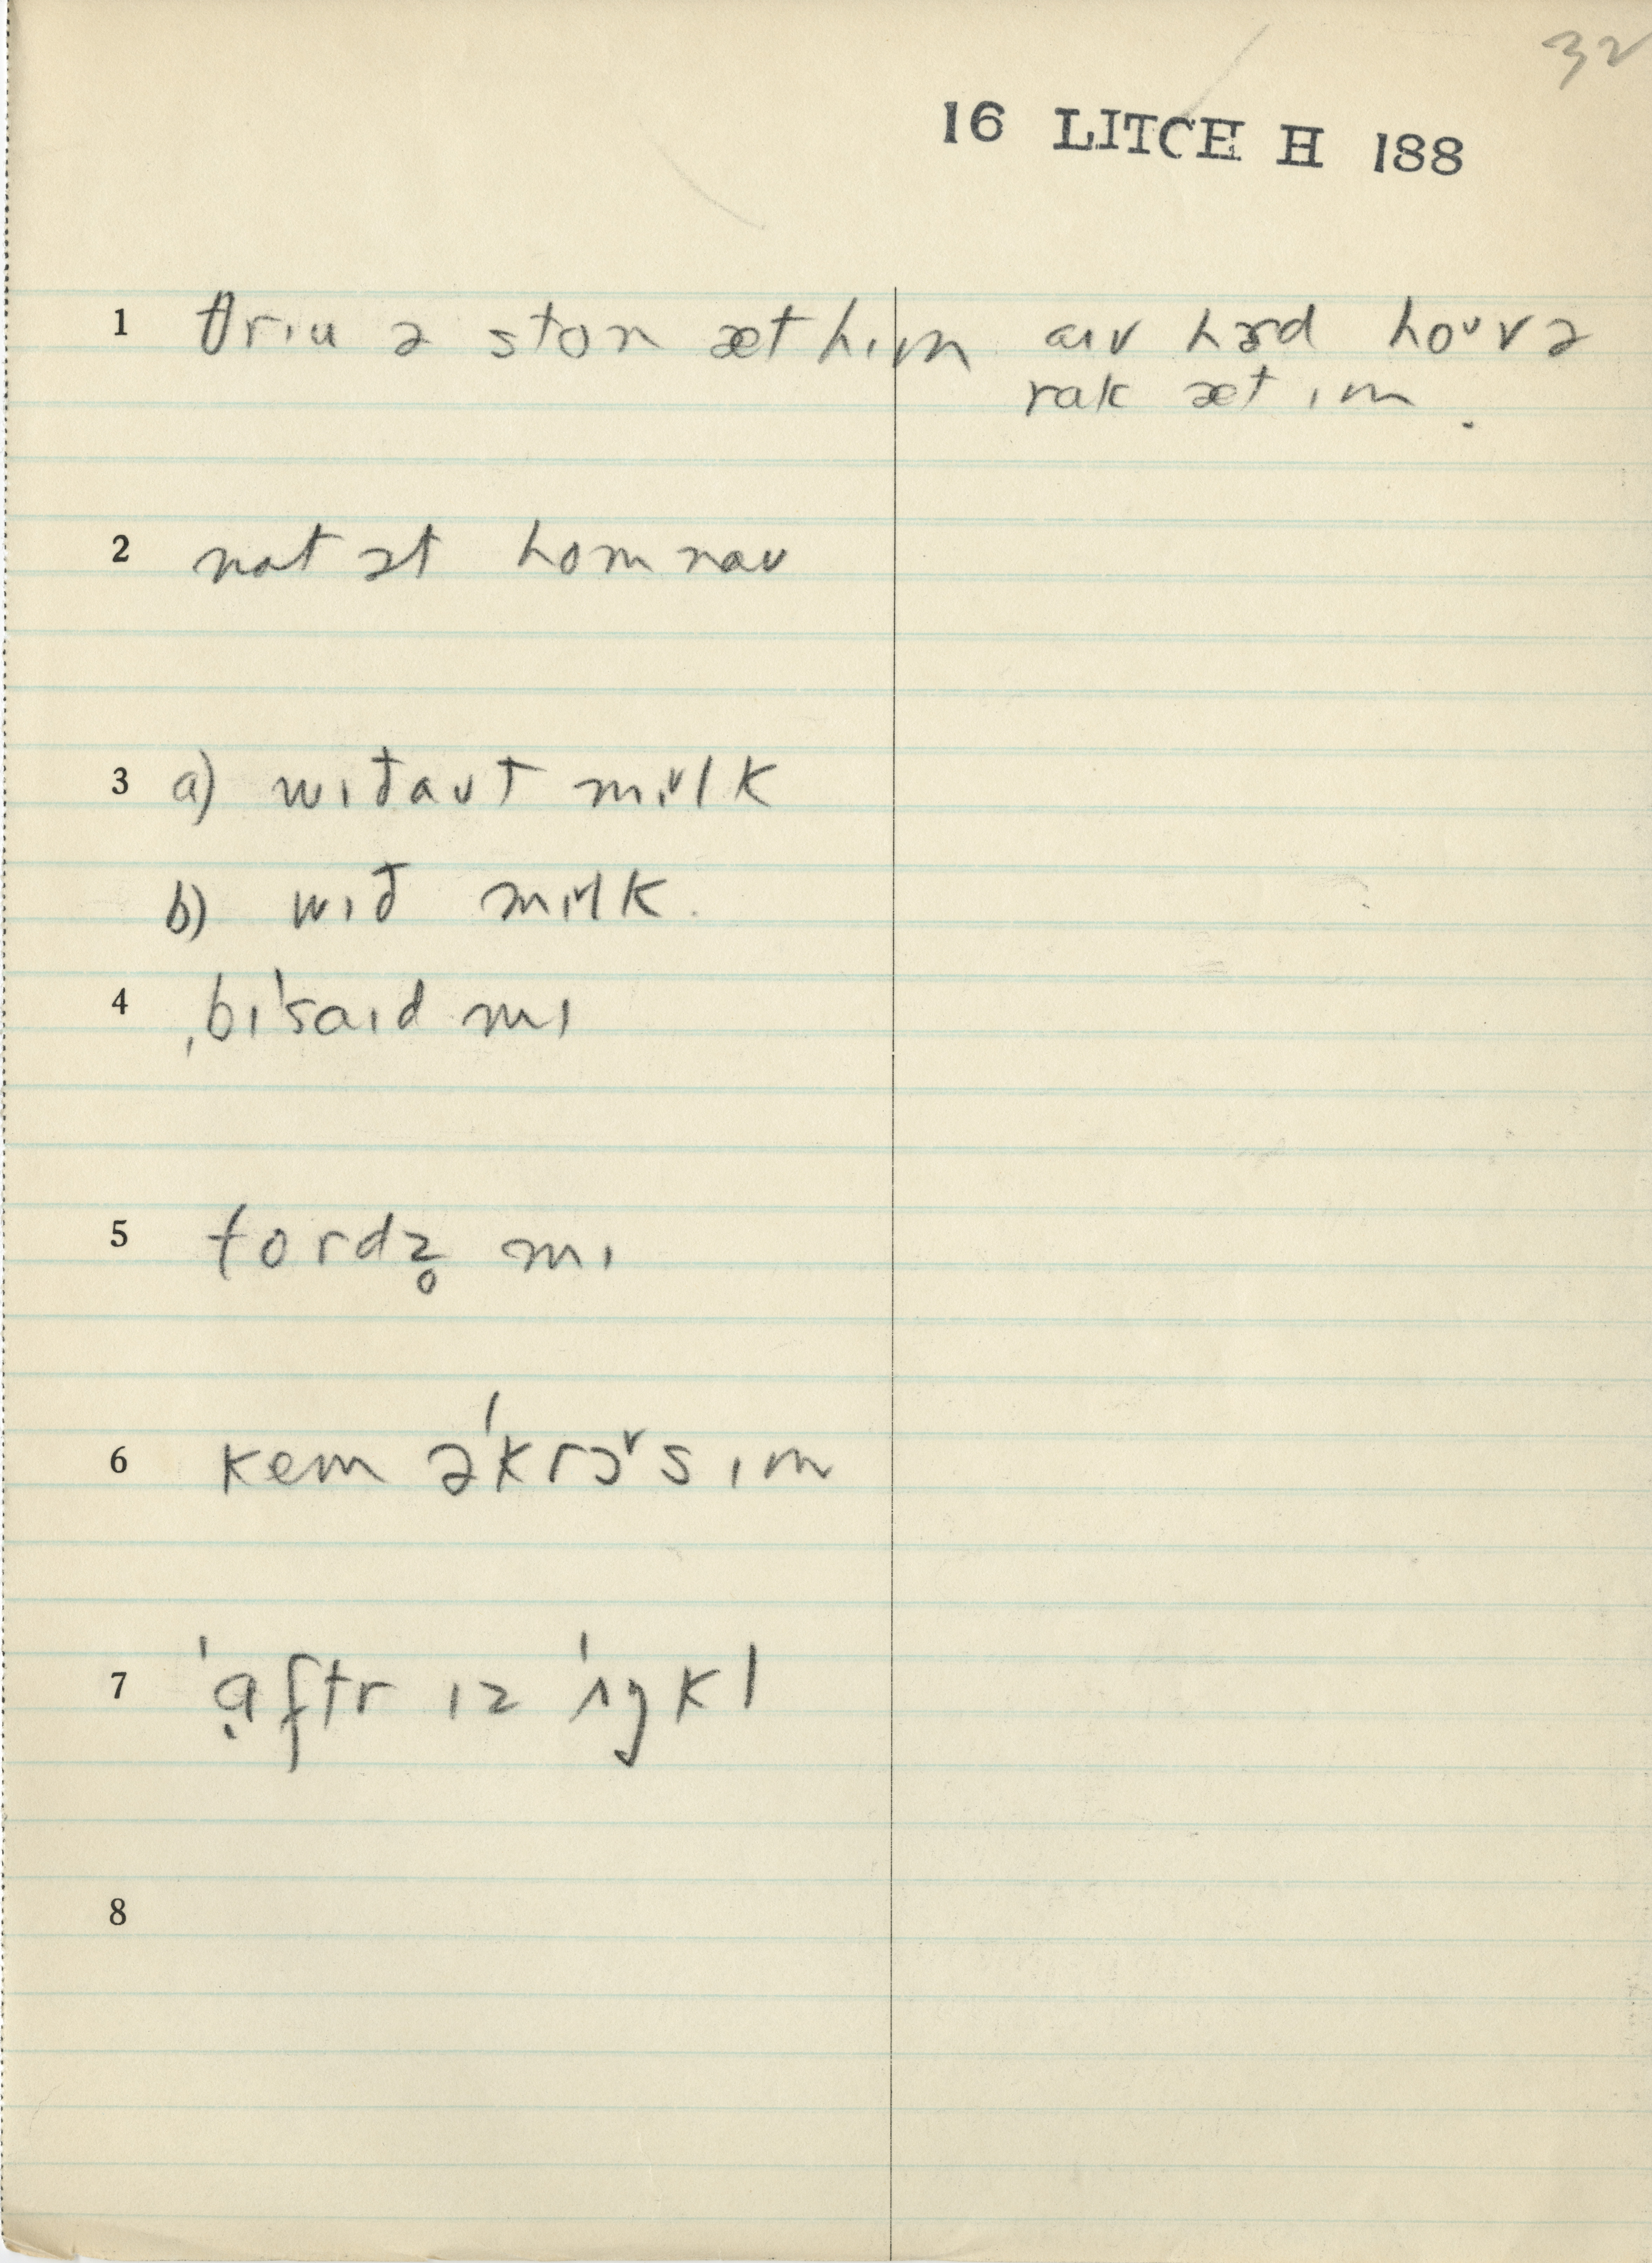 32
16 LITCH H 188
1 θrɪu ə ston æt hɪm aɪv hɜd hoᵛvə
rak æt ɪm.
2 nat ət hom naʊ
3 a) wɪðaʊt mɪᵛlk
b) wɪð mɪᵛlk.
4 ˌbɪˈsaɪd mɪ
5 tordz̥ mɪ
6 kem əˈkrɔᵛs ɪm
7 ˈạftr ɪz ˈʌŋkl
8